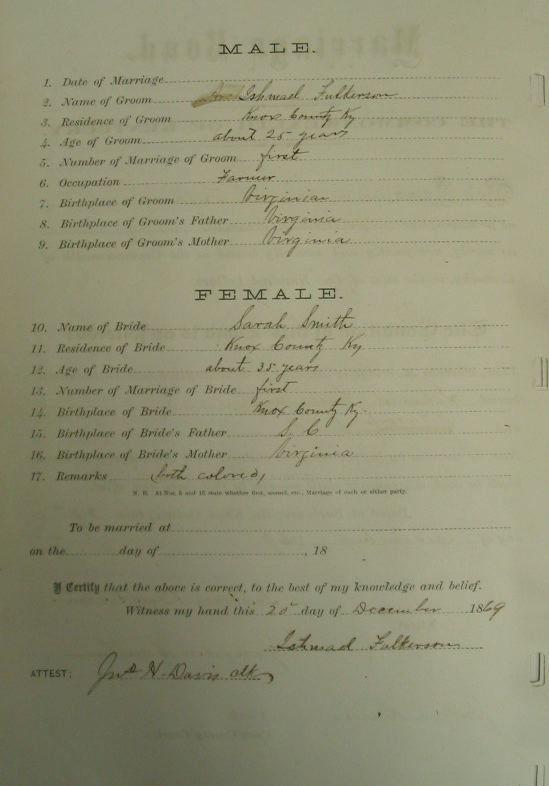 MALE.
1. Date of Marriage
2. Name of Groom Ishmael Fulkerson
3. Residence of Groom Knox County Ky
4. Age of Groom about 25 years
5. Number of Marriage of Groom first
6. Occupation Farmer
7. Birthplace of Groom Virginia
8. Birthplace of Groom's Father Virginia
9. Birthplace of Groom's Mother Virginia
FEMALE.
10. Name of Bride Sarah Smith
11. Residence of Bride Knox County Ky
12. Age of Bride about 35 years
13. Number of Marriage of Bride first
14. Birthplace of Bride Knox County Ky.
15. Birthplace of Bride's Father S. C
16. Birthplace of Bride's Mother Virginia
17. Remarks (both colored)
N. B. At Nos. 5 and 13 state whether first, second, etc., Marriage of each or either party.
To be married at
on the day of , 18
I Certify that the above is correct, to the best of my knowledge and belief.
Witness my hand this day of December 1869
Ishmael Fulkerson
ATTEST: Jno H. Davis clk